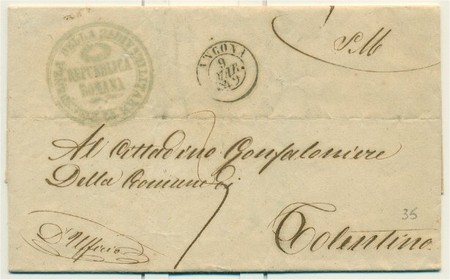 REPUBBLICA
ROMANA
ANCONA
9
MAR.
49
S.M
Al Cittadino Gonfaloniere
Della Comune di
Tolentino
D'Ufficio
35